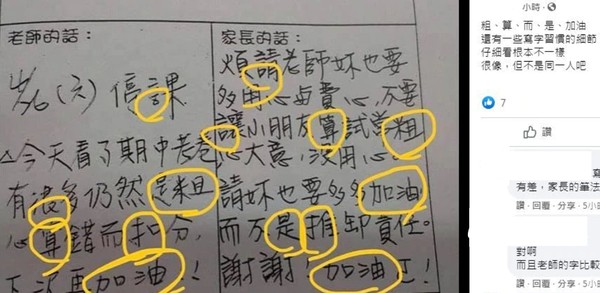 老師的話：
4/6(六)停課
△今天看了期中考卷
有很多仍然是粗
心算錯而扣分，
下次再加油！
家長的話：
煩請老師妳也要
多用心與費心，不要
讓小朋友算試卷粗
心大意，沒用心
請妳也要多多加油
而不是推卸責任。
謝謝！加油！
小時
粗、算、而、是、加油
還有一些寫字習慣的細節
仔細看根本不一樣
很像，但不是同一人吧
7
讚
有差，家長的筆法
讚．回覆．分享．5小時
對啊
而且老師的字比較
讚．回覆．分享．5小時